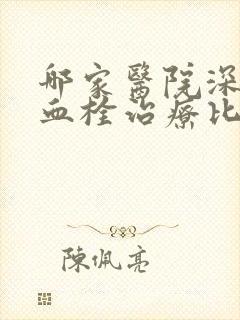 郍家醫院深
血栓治療比
陳佩亮